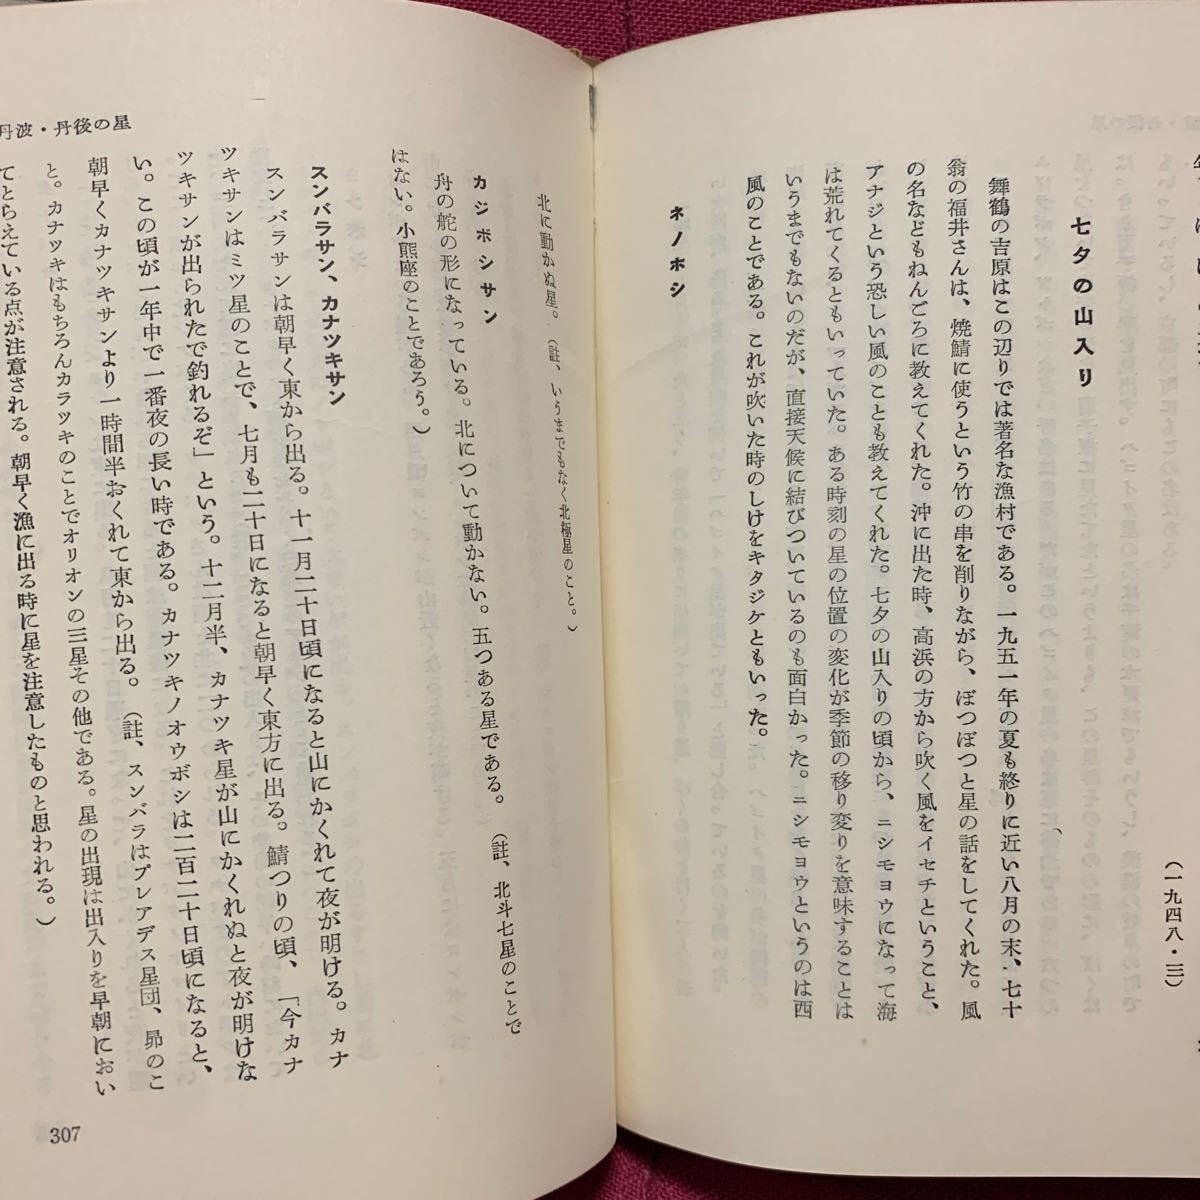 （一九四八・三）
七夕の山入り
舞鶴の吉原はこの辺りでは著名な漁村である。一九五一年の夏も終りに近い八月の末、七十
翁の福井さんは、焼鯖に使うという竹の串を削りながら、ぼつぼつと星の話をしてくれた。風
の名などもねんごろに教えてくれた。沖に出た時、高浜の方から吹く風をイセチということ、
アナジという恐しい風のことも教えてくれた。七夕の山入りの頃から、ニシモヨウになって海
は荒れてくるともいっていた。ある時刻の星の位置の変化が季節の移り変りを意味することは
いうまでもないのだが、直接天候に結びついているのも面白かった。ニシモヨウというのは西
風のことである。これが吹いた時のしけをキタジケともいった。
ネノホシ
丹波・丹後の星
北に動かぬ星。（註、いうまでもなく北極星のこと。）
カジボシサン
舟の舵の形になっている。北について動かない。五つある星である。（註、北斗七星のことで
はない。小熊座のことであろう。）
スンバラサン、カナツキサン
スンバラサンは朝早く東から出る。十一月二十日頃になると山にかくれて夜が明ける。カナ
ツキサンはミツ星のことで、七月も二十日になると朝早く東方に出る。鯖つりの頃、「今カナ
ツキサンが出られたで釣れるぞ」という。十二月半、カナツキ星が山にかくれぬと夜が明けな
い。この頃が一年中で一番夜の長い時である。カナツキノオウボシは二百二十日頃になると、
朝早くカナツキサンより一時間半おくれて東から出る。（註、スンバラはプレアデス星団、昴のこ
と。カナツキはもちろんカラツキのことでオリオンの三星その他である。星の出現は出入りを早朝におい
てとらえている点が注意される。朝早く漁に出る時に星を注意したものと思われる。）
307